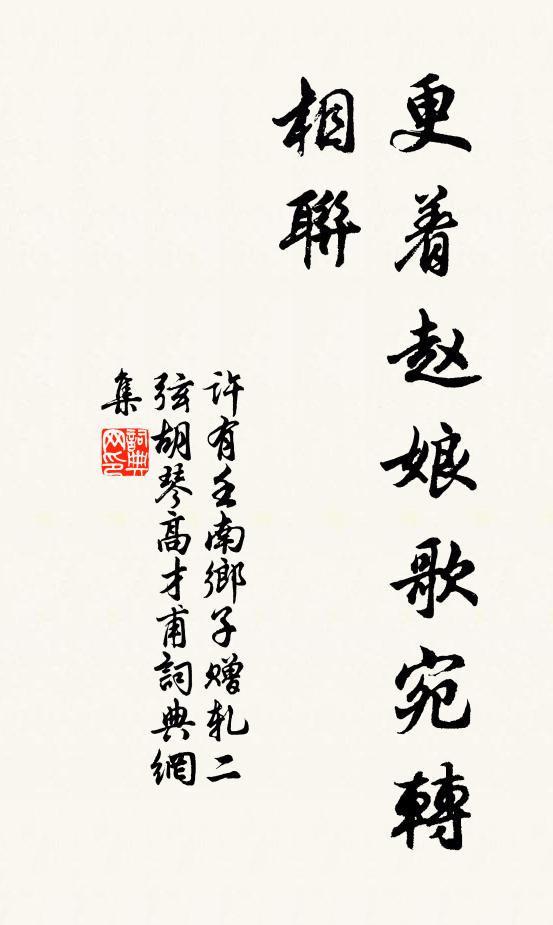 更着赵娘歌宛轉
相聯
許有壬南鄉子贈軋二
弦胡琴高才甫詞典網
集
詞典
网印